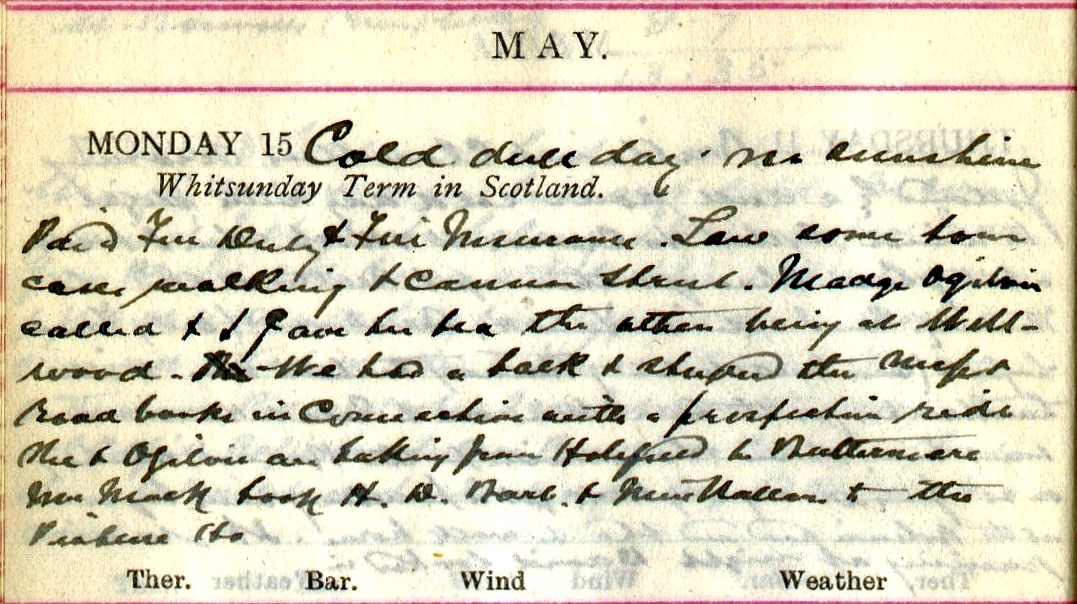 MAY.
MONDAY 15 Cold dull day. No sunshine
Whitsunday Term in Scotland.
Paid Feu Duty & Fire Insurance. Saw some town
cases walking & Cannon Street. Madge Ogilvie
called & I gave her tea the others being at Well-
wood. We had a talk & studied the maps &
road books in Connection with a prospective ride
she & Ogilvie are taking from Holyhead to Buttermere
Mrs Mack took H. D. Barb. & to the
Ho
Ther. Bar. Wind Weather